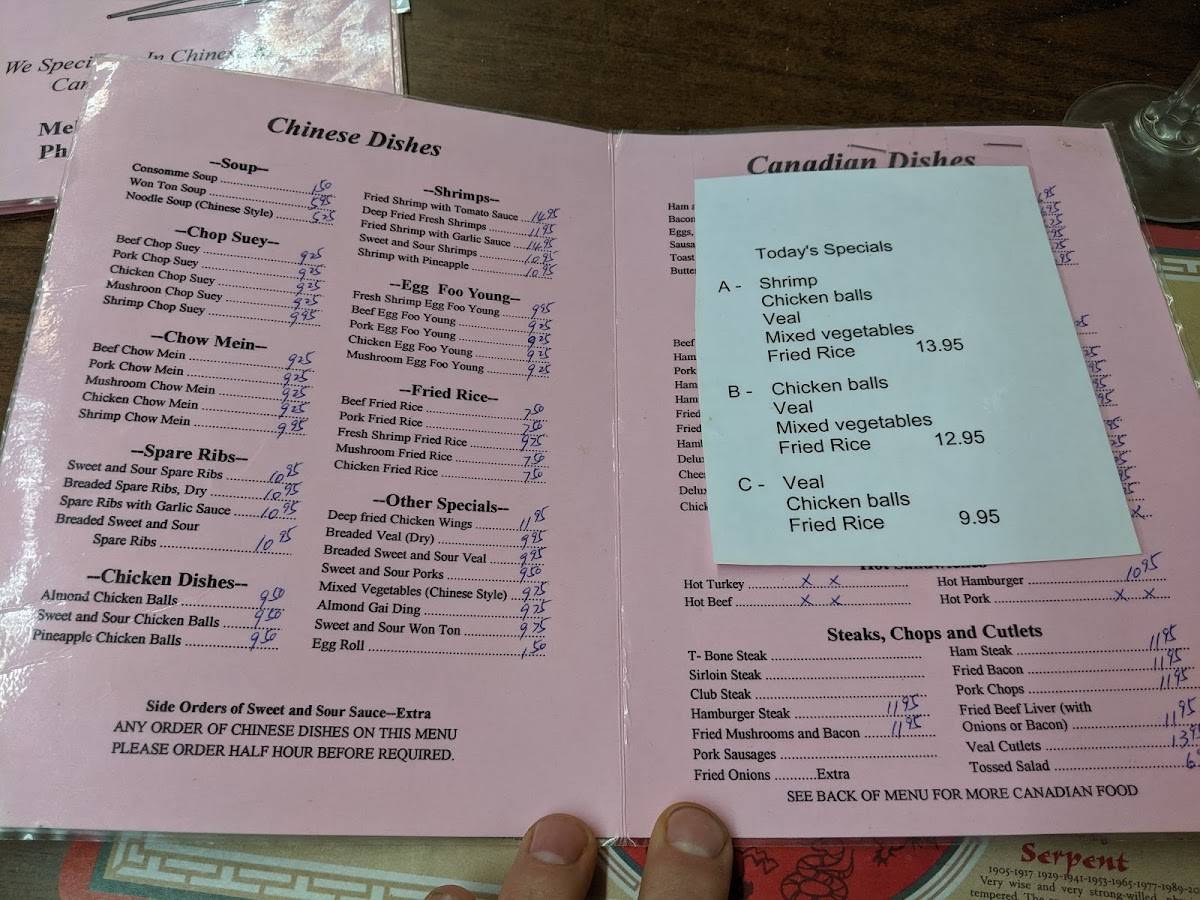 We Speci In Chines
Mel
Ph
Chinese Dishes
--Soup--
Consomme Soup 1.50
Won Ton Soup 5.95
Noodle Soup (Chinese Style) 5.25
--Chop Suey--
Beef Chop Suey 9.25
Pork Chop Suey 9.25
Chicken Chop Suey 9.25
Mushroon Chop Suey 9.25
Shrimp Chop Suey 9.95
--Chow Mein--
Beef Chow Mein 9.25
Pork Chow Mein 9.25
Mushroom Chow Mein 9.25
Chicken Chow Mein 9.25
Shrimp Chow Mein 9.95
--Spare Ribs--
Sweet and Sour Spare Ribs 10.95
Breaded Spare Ribs, Dry 10.95
Spare Ribs with Garlic Sauce 10.95
Breaded Sweet and Sour
Spare Ribs 10.95
--Chicken Dishes--
Almond Chicken Balls 9.50
Sweet and Sour Chicken Balls 9.50
Pineapple Chicken Balls 9.50
--Shrimps--
Fried Shrimp with Tomato Sauce 14.95
Deep Fried Fresh Shrimps 11.95
Fried Shrimp with Garlic Sauce 14.95
Sweet and Sour Shrimps 10.95
Shrimp with Pineapple 10.95
--Egg Foo Young--
Fresh Shrimp Egg Foo Young 9.95
Beef Egg Foo Young 9.25
Pork Egg Foo Young 9.25
Chicken Egg Foo Young 9.25
Mushroom Egg Foo Young 9.25
--Fried Rice--
Beef Fried Rice 7.50
Pork Fried Rice 7.50
Fresh Shrimp Fried Rice 9.75
Mushroom Fried Rice 7.50
Chicken Fried Rice 7.50
--Other Specials--
Deep fried Chicken Wings 11.95
Breaded Veal (Dry) 9.95
Breaded Sweet and Sour Veal 9.95
Sweet and Sour Porks 9.50
Mixed Vegetables (Chinese Style) 9.75
Almond Gai Ding 9.75
Sweet and Sour Won Ton 9.75
Egg Roll 1.50
Side Orders of Sweet and Sour Sauce--Extra
ANY ORDER OF CHINESE DISHES ON THIS MENU
PLEASE ORDER HALF HOUR BEFORE REQUIRED.
Canadian Dishes
Ham
Bacon
Eggs,
Sausa
Toast
Butte
Beef
Ham
Pork
Ham
Ham
Fried
Fried
Haml
Delu
Chee
Delu
Chick
Today's Specials
A - Shrimp
Chicken balls
Veal
Mixed vegetables
Fried Rice 13.95
B - Chicken balls
Veal
Mixed vegetables
Fried Rice 12.95
C - Veal
Chicken balls
Fried Rice 9.95
Hot Sandwiches
Hot Turkey x x
Hot Beef x x
Hot Hamburger 10.95
Hot Pork x x
Steaks, Chops and Cutlets
T- Bone Steak
Sirloin Steak
Club Steak
Hamburger Steak 11.95
Fried Mushrooms and Bacon 11.95
Pork Sausages
Fried Onions ..........Extra
Ham Steak 11.95
Fried Bacon 11.95
Pork Chops 11.95
Fried Beef Liver (with
Onions or Bacon) 11.95
Veal Cutlets 13.95
Tossed Salad 6
SEE BACK OF MENU FOR MORE CANADIAN FOOD
Serpent
1905-1917 1929-1941-1953-1965-1977-1989-20
Very wise and very strong-willed,
tempered.